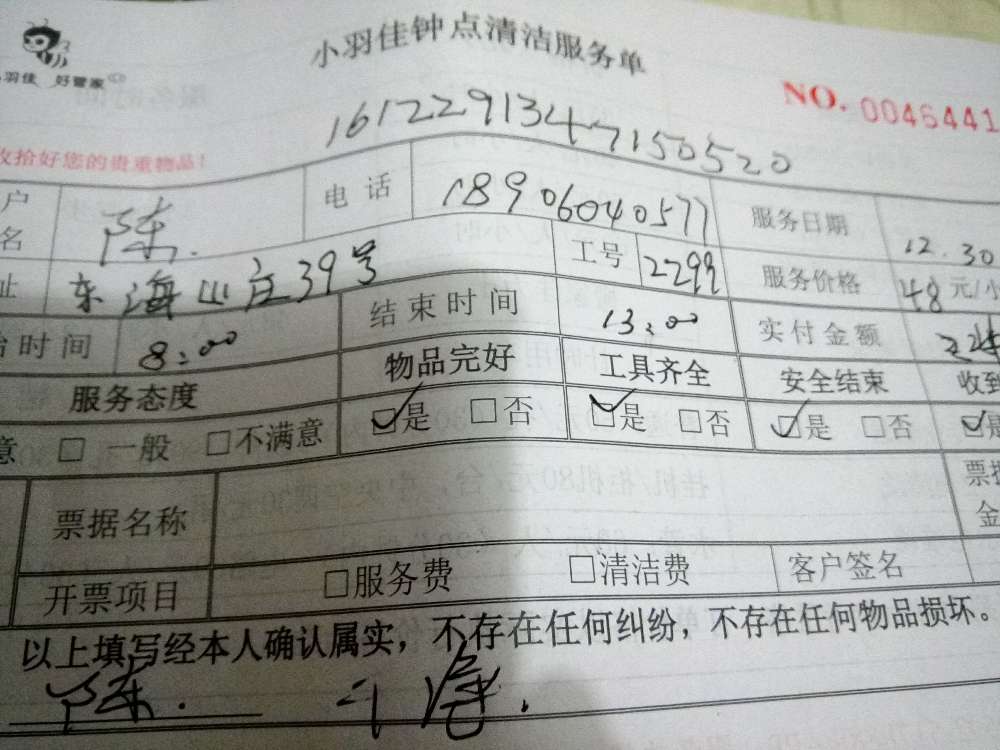 小羽佳钟点清洁服务单
羽佳 好管家
NO. 0046441
1612291347150520
收拾好您的贵重物品!
户名 陈. 电话 18906040577 服务日期 12.30
址 东海山庄39号 工号 2299 服务价格 48元/小
时间 8:00 结束时间 13:00 实付金额
服务态度 物品完好 工具齐全 安全结束 收到
意 □ 一般 □不满意 ☑是 □否 ☑是 □否 ☑是 □否 ☑是
票据名称 票据金
开票项目 □服务费 □清洁费 客户签名
以上填写经本人确认属实，不存在任何纠纷，不存在任何物品损坏。
陈.